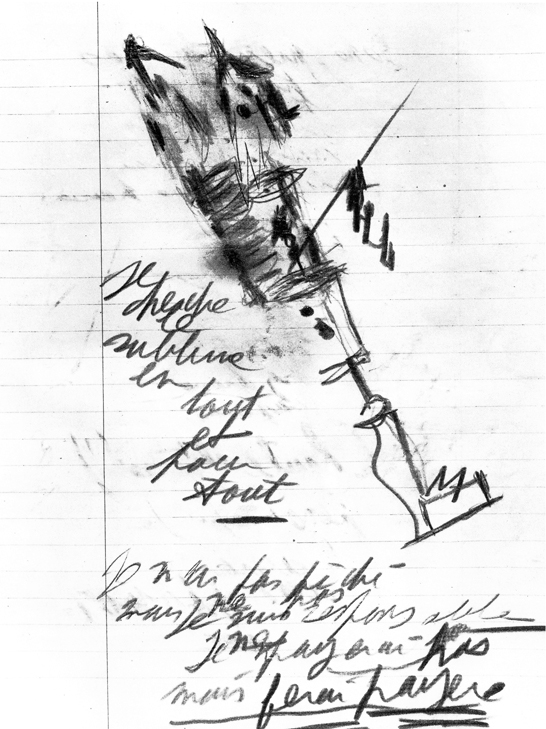 Je
cherche
le
sublime
en
tout
et
pour
tout
Je n'ai pas péché
mais je ne suis pas responsable
Je ne payerai pas
mais ferai payere